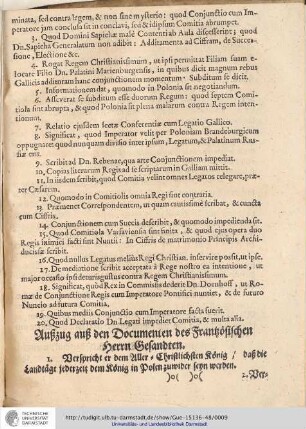 minata, sed contra legem, & non sine mysterio: quod Conjunctio cum Im-
peratore jam conclusa sit in conclavi, sed & idipsum Comitia abrumpet.
3. Quod Domini Sapiehæ malè Contentiab Aula discesserint; quod
Dn. Sapieha Generalatum non adibit: Additamenta ad Ciffram, de Succes-
sione, Electione &c.
4. Rogat Regem Christianissimum, ut ipsi permittat Filiam suam e-
locare Filio Dn. Palatini Marienburgensis, in quibus dicit magnum rebus
Gallicis additurum hanc conjunctionem momentum: Subditum se dicit.
5. Informationem dat, quomodo in Polonia sit negotiandum.
6. Asseverat se subditum esse duorum Regum: quod septem Comi-
tiola sint abrupta, & quod Polonia sit plena malorum contra Regem inten-
tionum.
7. Relatio ejusdem secretæ Conferentiæ cum Legatio Gallico.
8. Significat, quod Imperator velit per Polonum Brandeburgicum
oppugnare: quod nunquam divisio inter ipsum, Legatum, & Palatinum Rus-
siæ erit.
9. Scribit ad Dn. Rebenac, qua arte Conjunctionem impediat.
10. Copias literarum Regi ad se scriptarum in Galliam mittit.
11. In iisdem scribit, quod Comitia velint omnes Legatos relegare, præ-
ter Cæsareum.
12. Quomodo in Comitiolis omnia Regi sint contraria.
13. Præmonet Correspondentem, ut quam cautissimè scribat, & cuncta
cum Ciffris.
14. Conjunctionem cum Suecis describit, & quomodo impedienda sit.
15. Quod Comitiola Varsaviensia sint finita, & quod ejus opera duo
Regis inimici facti sint Nuntii: In Ciffris de matrimonio Principis Archi-
ducissæ scribit.
16. Quod nullus Legatus melius Regi Christian. inservire possit, ut ipse.
17. De mediatione scribit accepta à Rege nostro ex intentione, ut
major occasio sit de novo gustus contra Regem Christianissimum.
18. Significat, quòd Rex in Commissis dederit Dn. Doenhoff, ut Ro-
mæ de Conjunctione Regis cum Imperatore Pontifici nuntiet, & de futuro
Nuncio ad futura Comitia.
19. Quibus mediis Conjunctio cum Imperatore facta fuerit.
20. Quod Declaratio Dn. Legati impediet Comitia, & multa alia.
Außzug auß den Documenten des Frantzösischen
Herrn Gesandten.
1. Verspricht er dem Aller-Christlichsten König / daß die
Landtäge jederzeit dem König in Polen zuwider seyn werden.
)o( )o( 2. Ver-
TECHNISCHE UNIVERSITÄT DARMSTADT
http://tudigit.ulb.tu-darmstadt.de/show/Gue-15136-48/0009
Universitäts- und Landesbibliothek Darmstadt